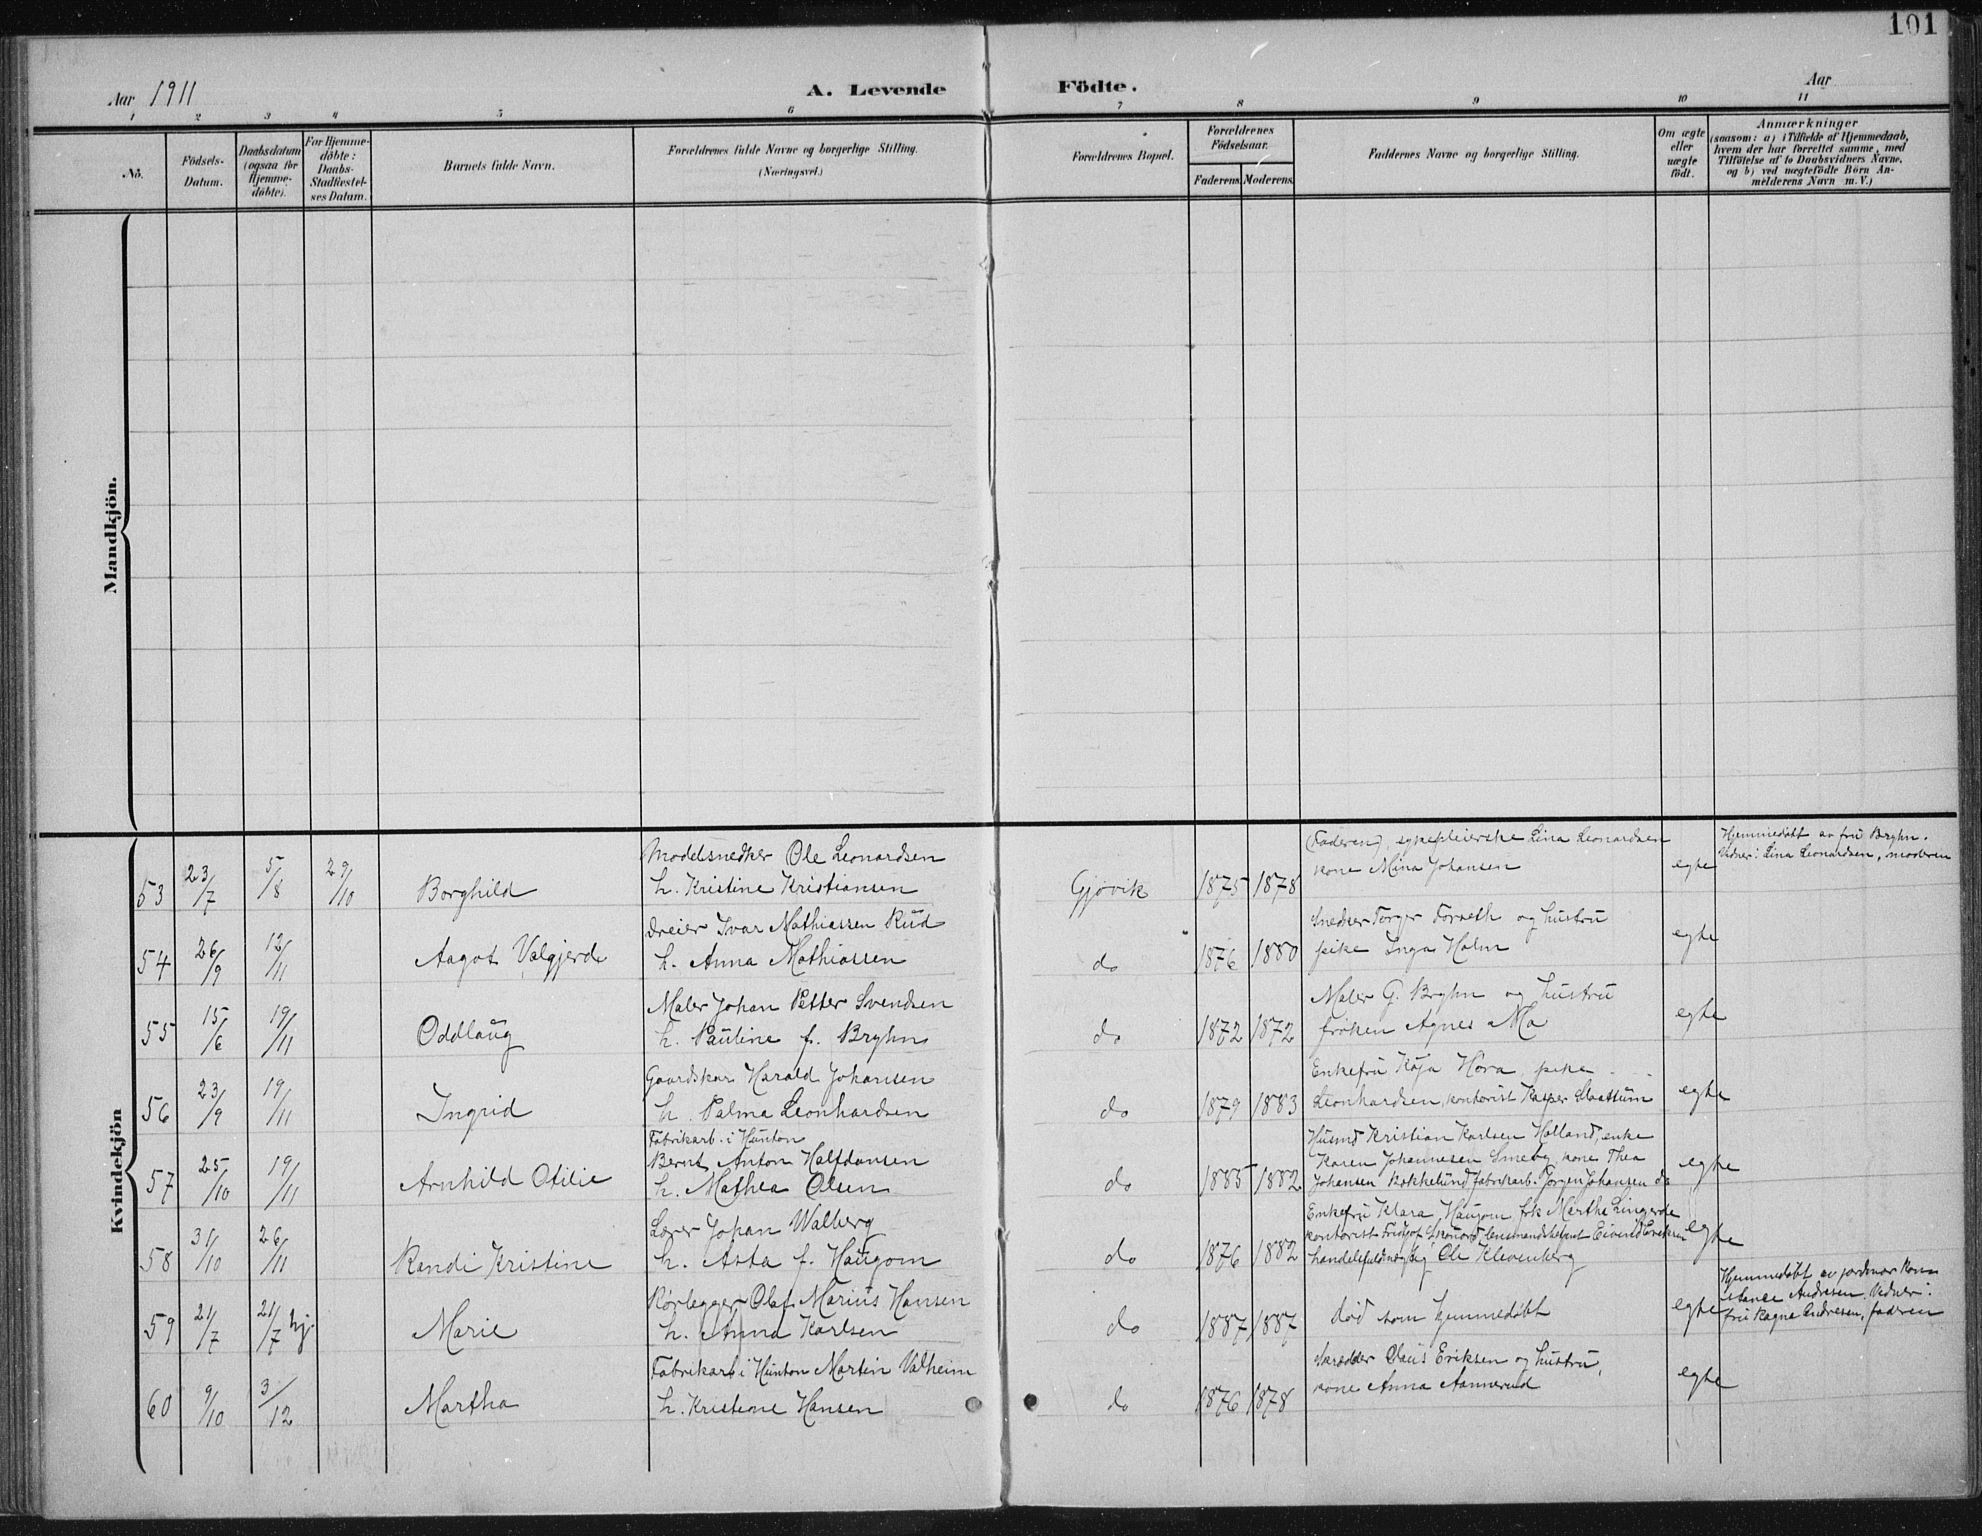 101
Aar 1911
A. Levende Födte.
Aar
1 2 3 4 5 6 7 8 9 10 11
No.
Födsels-Datum.
Daabsdatum (ogsaa for Hjemme-döbte).
For Hjemme-döbte: Daabs-Stadfæstel-ses Datum.
Barnets fulde Navn.
Forældrenes fulde Navne og borgerlige Stilling.
(Næringsvei.)
Forældrenes Bopæl.
Forældrenes Födselsaar.
Faderens. Moderens.
Faddernes Navne og borgerlige Stilling.
Om ægte eller uægte födt.
Anmærkninger
(saasom: a) i Tilfælde af Hjemmedaab,
hvem der har forrettet samme, med
Tilföielse af to Daabsvidners Navne,
og b) ved uægtefödte Börn An-
melderens Navn m. V.)
Mandkjön.
Kvindekjön
53 23/7 5/8 29/10 Borghild
Modelsnedker Ole Leonardsen
h. Kristine Kristiansen
Gjövik 1875 1878
(Faderen), sykepleierske Lina Leonardsen
kone Mina Johansen
egte
Hjemmedöbt av fru Bryhn.
Vidner: Lina Leonardsen, moderen
54 26/9 12/11 Aagot Valgjerde
Dreier Ivar Mathiassen Rud
h. Anna Mathiassen
do 1876 1880
Snedker Torger Forseth og hustru
pike Inga Holm
egte
55 15/6 19/11 Oddlaug
Maler Johan Petter Svendsen
h. Pauline f. Bryhn
do 1872 1872
Maler G. Bryhn og hustru
fröken Agnes Mo
egte
56 23/9 19/11 Ingrid
Gaardskar Harald Johansen
h. Palma Leonhardsen
do 1879 1883
Enkefru Kaja Hova, pike
Leonhardsen, kontorist Kasper Slaattum
egte
57 25/10 19/11 Arnhild Otilie
Fabrikarb. i Hunton
Bernt Anton Halfdansen
h. Mathea Olsen
do 1885 1882
Husmd Kristian Karlsen Holland, enke
Karen Johannesen Smeby, kone Thea
Johansen Kokkelund fabrikarb. Jörgen Johansen do
egte
58 31/10 26/11 Randi Kristine
Lærer Johan Walberg
h. Asta f. Haugom
do 1876 1882
Enkefru Klara Haugom, frk Marthe Lingerde
kontorist Fridtjof lensmandsbetjent Eivind Eriksen
handelsfuldmægtig Ole Klevenberg
egte
59 21/7 21/7 hj. Marie
Rörlegger Olaf Marius Hansen
h. Anna Karlsen
do 1887 1887
död som hjemmedöbt
egte
Hjemmedöbt av jordmor Kon-
stance Andresen. Vidner:
fru Ragna Andresen, faderen
60 9/10 3/12 Martha
Fabrikarb i Hunton Martin Valheim
h. Kristine Hansen
do 1876 1878
skrædder Claus Eriksen og hustru,
kone Anna Aannerud
egte